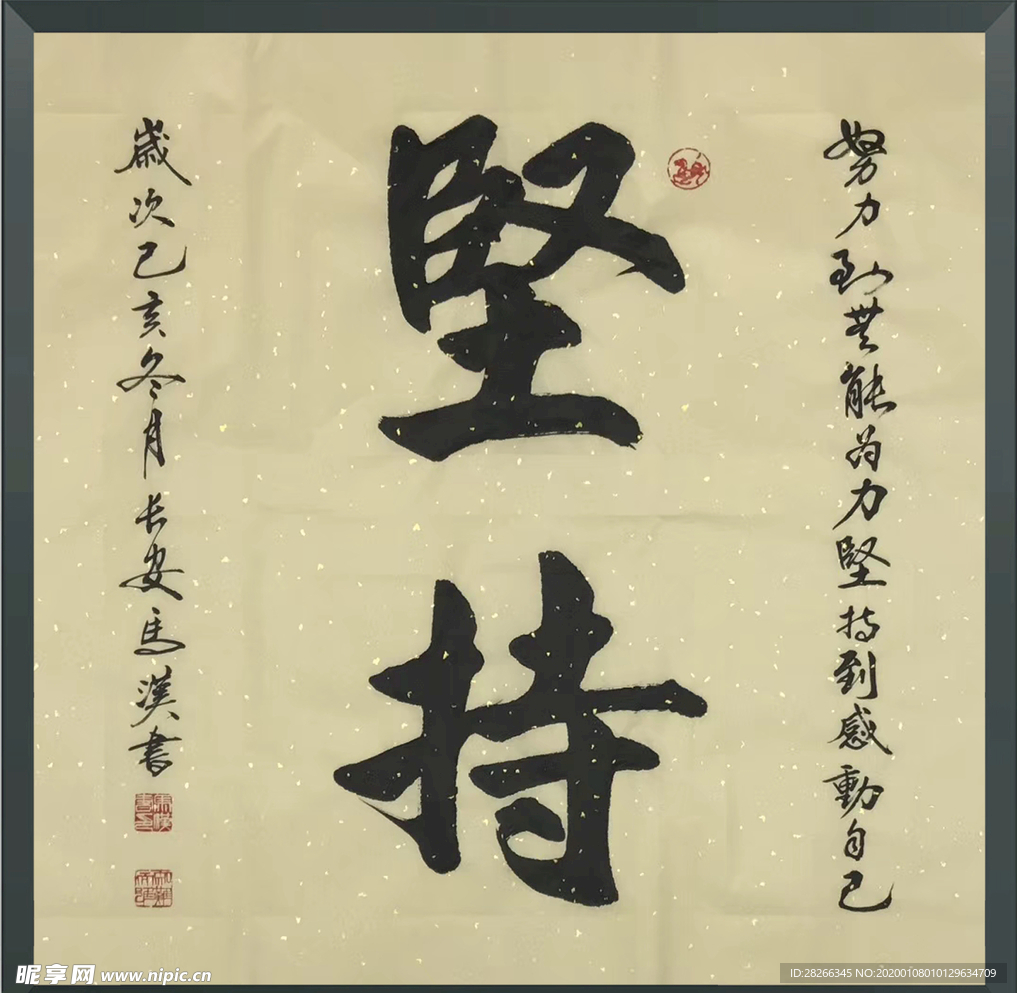 努力到無能為力堅持到感動自己
堅持
歲次己亥冬月长安馬漢書
昵享网 www.nipic.cn
ID:28266345 NO:20200108010129634709